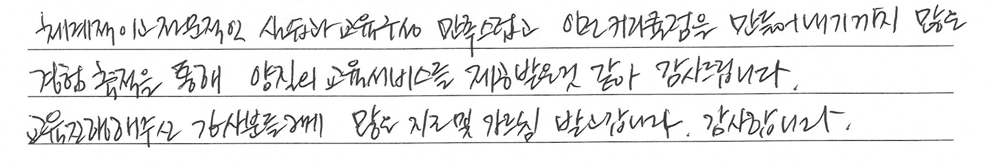 체계적이고 전문적인 상담과 교육구성 만족스럽고 이런 커리큘럼을 만들어내기까지 많은
경험 축적을 통해 양질의 교육서비스를 제공받은것 같아 감사드립니다.
교육진행해주신 강사분들께 많은 지도 및 가르침 받고갑니다. 감사합니다.